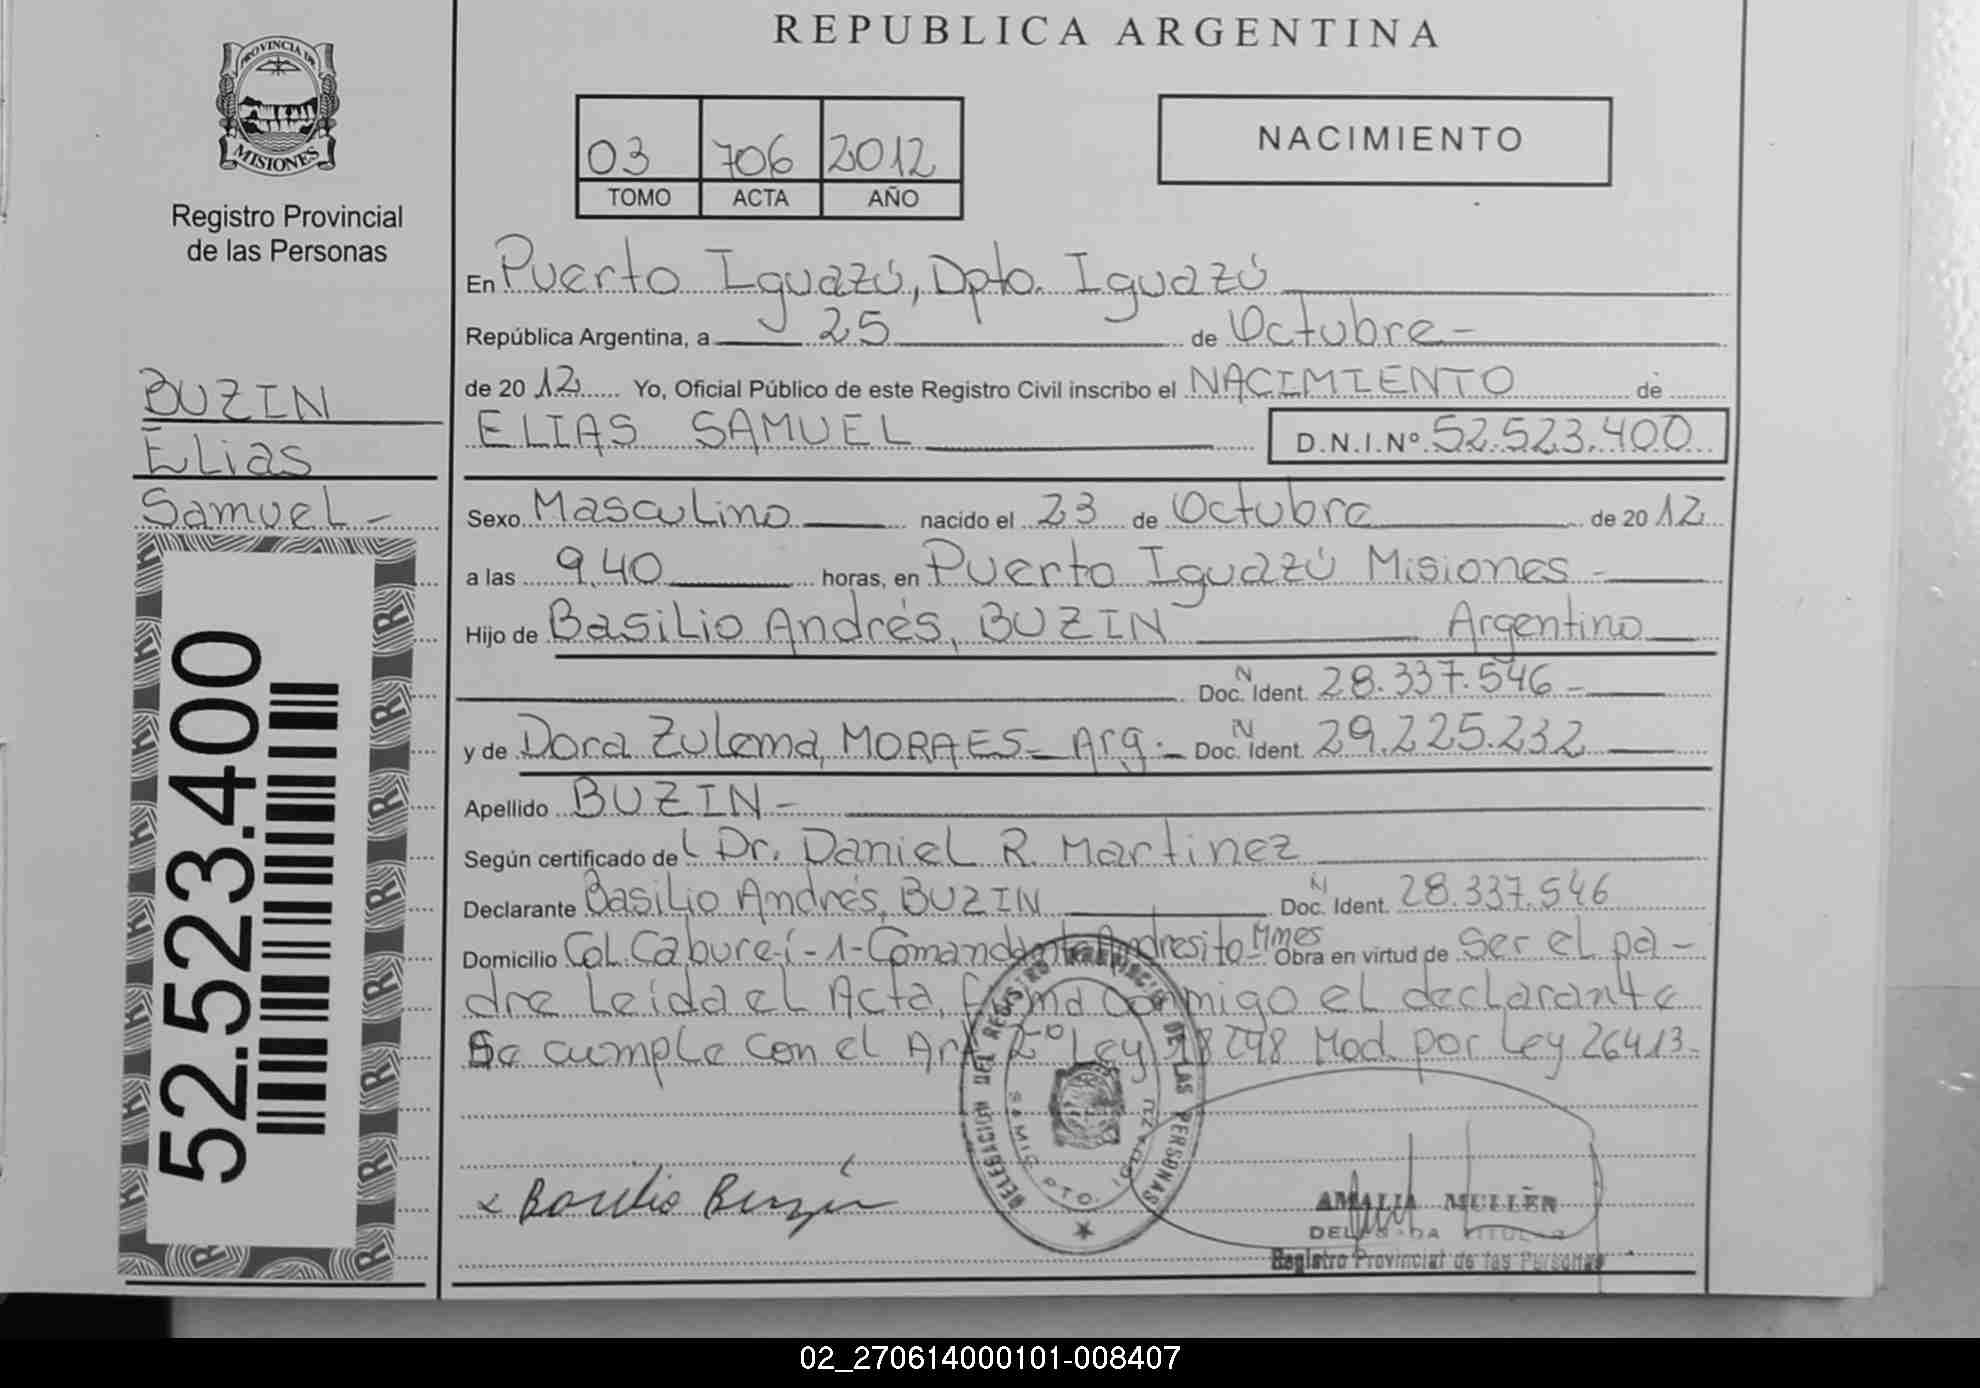 REPUBLICA ARGENTINA
PROVINCIA DE
MISIONES
Registro Provincial
de las Personas
03 706 2012
TOMO ACTA AÑO
NACIMIENTO
En Puerto Iguazú, Dpto. Iguazú
República Argentina, a 25 de Octubre -
de 20 12 Yo, Oficial Público de este Registro Civil inscribo el NACIMIENTO de
ELIAS SAMUEL D.N.I.Nº 52.523.400
BUZIN
Elias
Samuel -
52.523.400
Sexo Masculino nacido el 23 de Octubre de 20 12
a las 9.40 horas, en Puerto Iguazú Misiones -
Hijo de Basilio Andrés, BUZIN Argentino
N
Doc. Ident. 28.337.546 -
y de Dora Zulema, MORAES - Arg. - N Doc. Ident. 29.225.232
Apellido BUZIN -
Según certificado de l Dr. Daniel R. Martinez
Declarante Basilio Andrés, BUZIN N Doc. Ident. 28.337.546
Domicilio Col. Cabure-í - 1 - Comandante Andresito - Mnes Obra en virtud de Ser el pa -
dre Leida el Acta, firma conmigo el declarante
Se cumple con el Art. 2º Ley 18248 Mod. por Ley 26413 -
DELEGACION DEL REGISTRO PROVINCIAL DE LAS PERSONAS
SAMIC PTO. IGUAZU
x Basilio Buzin
AMALIA MULLER
DELEGADA TITULAR
Registro Provincial de las Personas
02_270614000101-008407